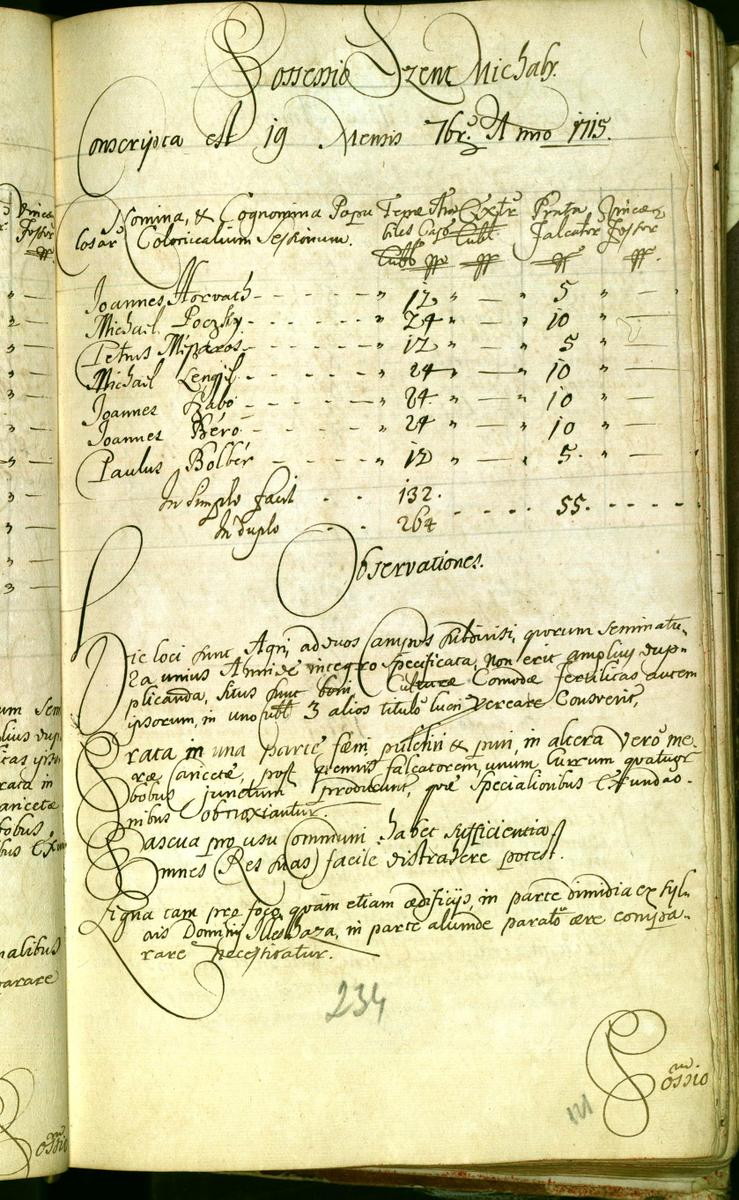 Possessio Szent Michaly.
Conscripta est 19 Mensis 7br: Anno 1715.
Nomina, & Cognomina Papu Terræ Ara Extir Prata Vineæ
losar Colonicalium Sessionum. biles Cap Cubl Falcator Fossor
Cubl
Joannes Horvath - - - - - " 12 " — " 5 " —
Michail Poczky - - - - - " 24 " — " 10 " —
Petrus - - - - - " 12 " — " 5 " —
Michail Lengyl - - - - - " 24 " — " 10 " —
Joannes Szabo - - - - - " 24 " — " 10 " —
Joannes Béro - - - - - " 24 " — " 10 " —
Paulus Bolbér - - - - - " 12 " — " 5 " —
In Simplo facit . . . 132. 55.
In Duplo . . 264
Observationes.
Hic loci sunt Agri, ad duos Campos subdivisi, quorum seminatu-
ra unius Anni de integro specificata, non erit amplius dup-
plicanda, situs sunt Culturæ Comodæ fertilitas autem
ipsorum, in uno Cubl 3 alios titulo lucri vereare Consverit,
Prata in una parte fæni pulchri & puri, in altera vero me-
ræ Carectæ, post quemvis falcatorem, unum Currum quatuor
bobus junctum producunt, quæ Specialionibus Exundao-
nibus obnoxiantur.
Pascua pro usu Communi habet sufficientia
Omnes (Res suas) facile distrahere potest.
Ligna tam pro foco, quàm etiam ædificijs, in parte dimidia ex syl-
vis Domini Illeshaza, in parte aliunde parato ære compa-
rare necessitatur.
234
Possio